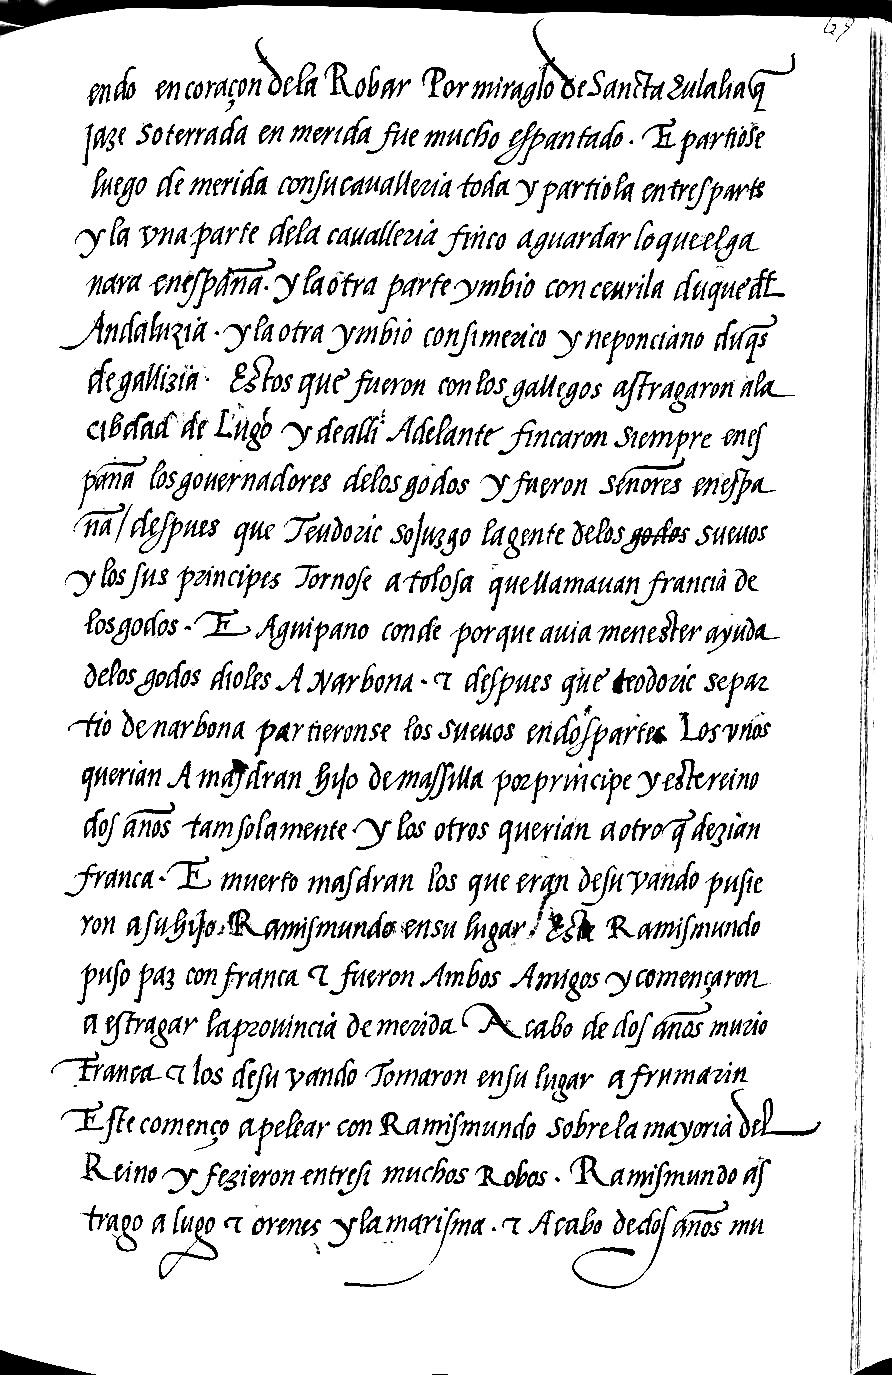 69
endo en coraçon de la Robar Por miraglo de Sancta Eulalia q̄
jaze soterrada en merida fue mucho espantado. E partiose
luego de merida con su cavalleria toda y partiola en tres parts
y la vna parte de la cavalleria finco a guardar lo que el ga
nara en espan̄a. y la otra parte ymbio con ceurila duque dl
Andaluzia. y la otra ymbio con simerico y neponciano duqs
de gallizia. Estos que fueron con los gallegos astragaron a la
cibdad de Lugo y de alli Adelante fincaron siempre en es
pan̄a los governadores de los godos y fueron sen̄ores en espa
n̄a / despues que Teudoric sojuzgo la gente de los godos suevos
y los sus principes Tornose a tolosa que llamauan francia de
los godos. E Aguipano conde porque auia menester ayuda
de los godos dioles A Narbona. ⁊ despues que teodoric se par
tio de narbona partieronse los suevos en dos partes Los vnos
querian A masdran hijo de massilla por principe y este reino
dos an̄os tam solamente. y los otros querian a otro q̄ dezian
franca. E muerto masdran los que eran de su vando pusie
ron a su hijo Ramismundo en su lugar / Este Ramismundo
puso paz con franca ⁊ fueron Ambos Amigos y començaron
a estragar la prouincia de merida A cabo de dos an̄os murio
Franca ⁊ los de su vando Tomaron en su lugar a frumarin
Este començo a pelear con Ramismundo sobre la mayoria del
Reino y fezieron entre si muchos Robos. Ramismundo as
trago a lugo ⁊ orenes y la marisma. ⁊ A cabo de dos an̄os mu